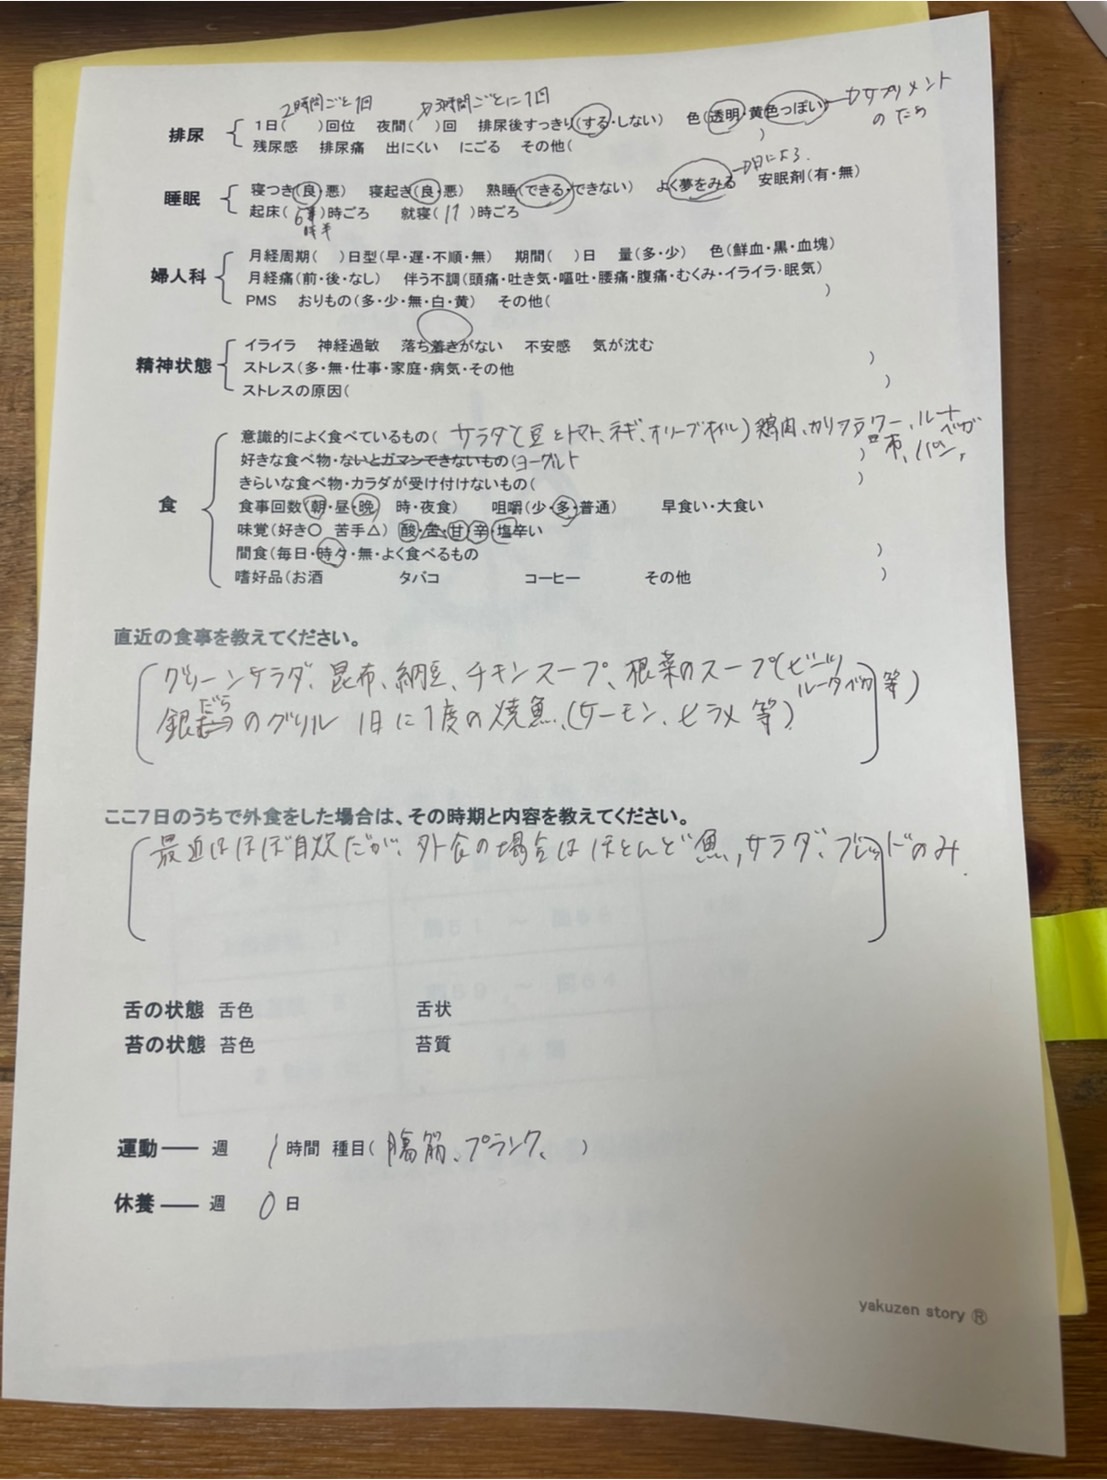 2時間ごと1回 3時間ごとに1回
サプリメントのため
排尿 1日( )回位 夜間( )回 排尿後すっきり(する・しない) 色(透明・黄色っぽい)
残尿感 排尿痛 出にくい にごる その他( )
日による
睡眠 寝つき(良・悪) 寝起き(良・悪) 熟睡(できる・できない) よく夢をみる 安眠剤(有・無)
起床(6 半)時ごろ 就寝(11)時ごろ
婦人科 月経周期( )日型(早・遅・不順・無) 期間( )日 量(多・少) 色(鮮血・黒・血塊)
月経痛(前・後・なし) 伴う不調(頭痛・吐き気・嘔吐・腰痛・腹痛・むくみ・イライラ・眠気)
PMS おりもの(多・少・無・白・黄) その他( )
精神状態 イライラ 神経過敏 落ち着きがない 不安感 気が沈む
ストレス(多・無・仕事・家庭・病気・その他 )
ストレスの原因( )
食 意識的によく食べているもの( サラダ(豆とトマト、ネギ、オリーブオイル)鶏肉、カリフラワー、ルートベガ
好きな食べ物・ないとガマンできないもの(ヨーグルト ) 布、パン、
きらいな食べ物・カラダが受け付けないもの( )
食事回数(朝・昼・晩 時・夜食) 咀嚼(少・多・普通) 早食い・大食い
味覚(好き○ 苦手△) 酸・苦・甘・辛・塩辛い
間食(毎日・時々・無・よく食べるもの )
嗜好品(お酒 タバコ コーヒー その他 )
直近の食事を教えてください。
グリーンサラダ、昆布、納豆、チキンスープ、根菜のスープ(ビーツ ルータバガ等)
銀だらのグリル 1日に1度の焼魚、(サーモン、ヒラメ等)
ここ7日のうちで外食をした場合は、その時期と内容を教えてください。
最近はほぼ自炊だが、外食の場合はほとんど魚,サラダ、ブレッドのみ.
舌の状態 舌色 舌状
苔の状態 苔色 苔質
運動── 週 1 時間 種目( 腹筋、プランク、 )
休養── 週 0 日
yakuzen story ®